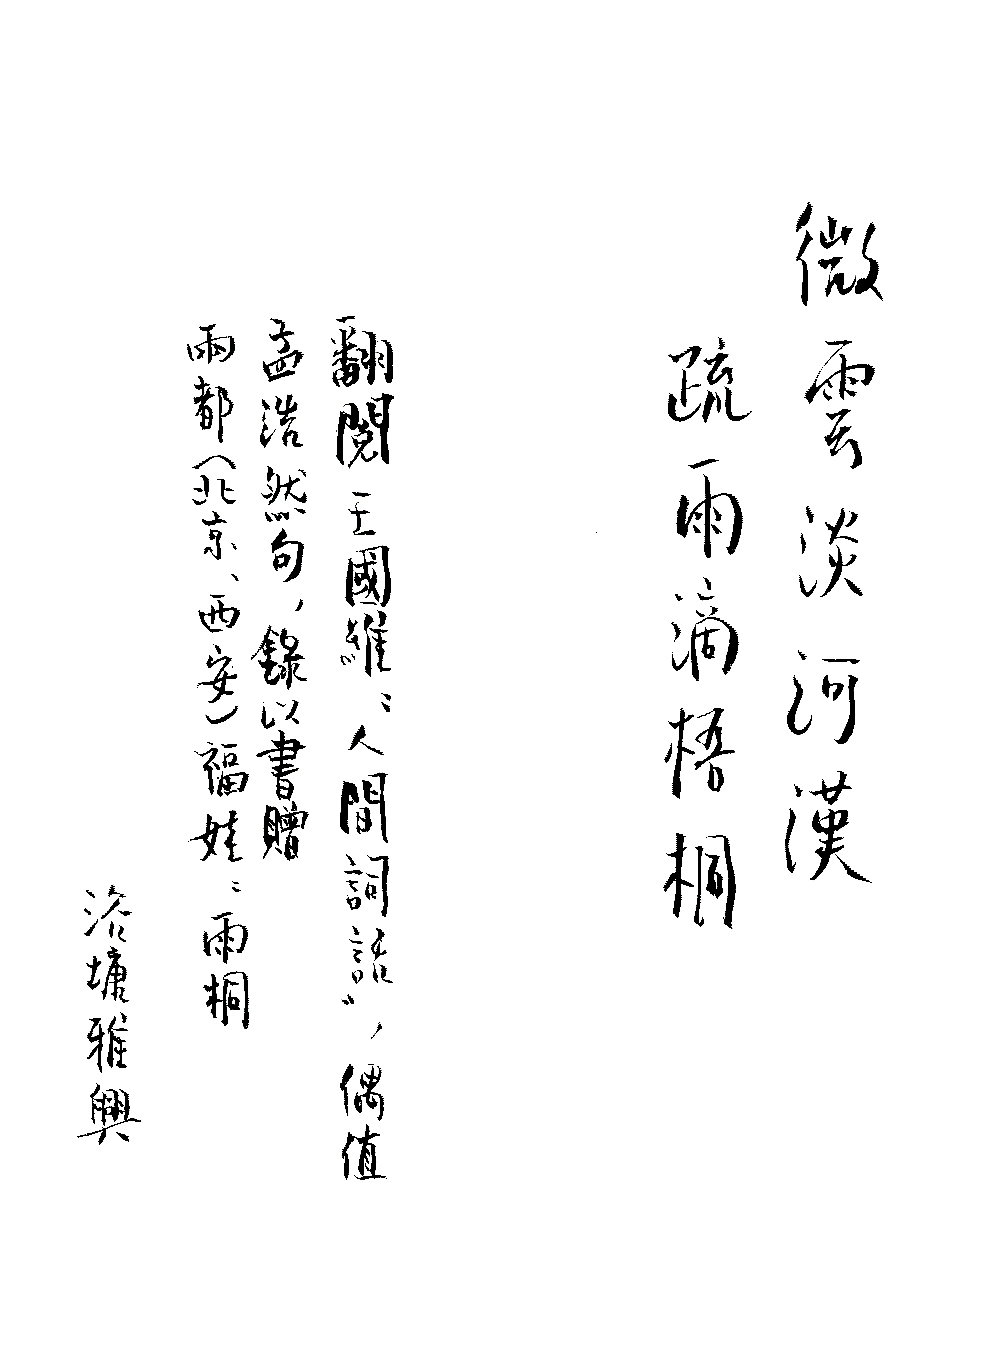 微雲淡河漢
疏雨滴梧桐
翻閱王國維:"人間詞話",偶值
孟浩然句,錄以書贈
兩都(北京、西安)福娃:雨桐
洛墉雅興